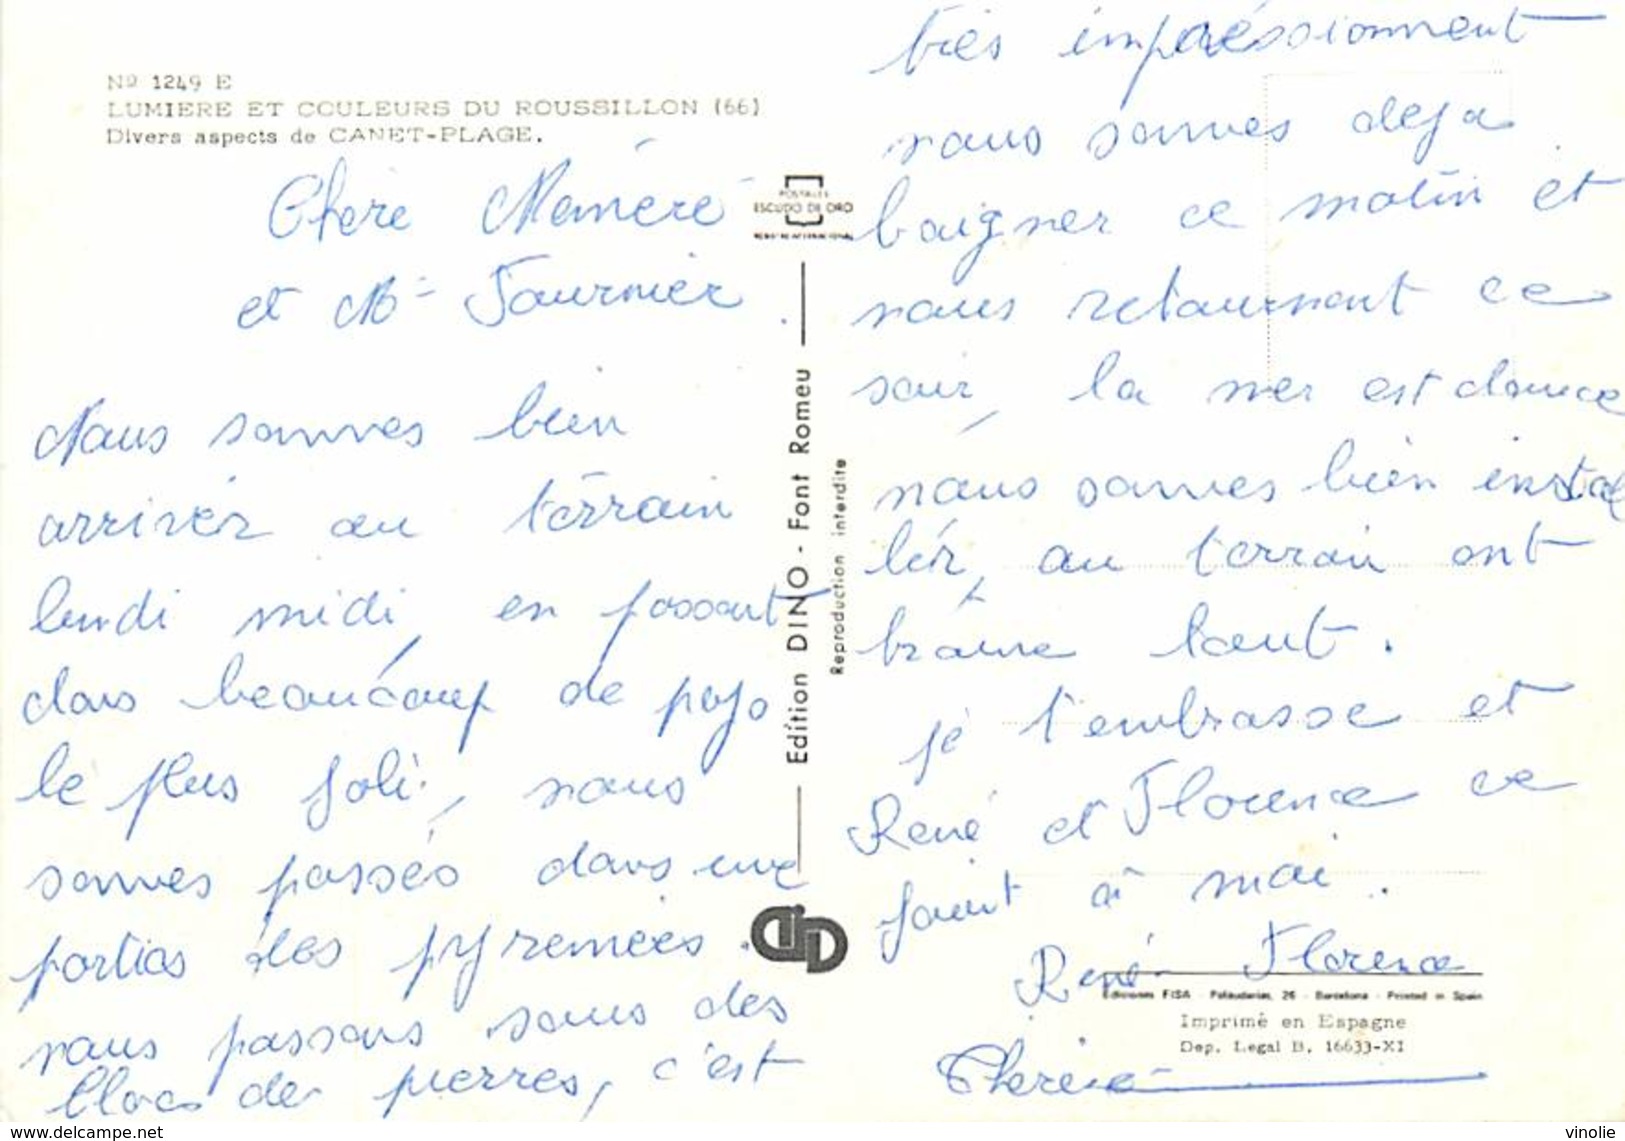 Nº 1249 E
LUMIERE ET COULEURS DU ROUSSILLON (66)
Divers aspects de CANET-PLAGE.
Chère Mémère
et Mr Fournier
Nous sommes bien
arrivér au terrain
lundi midi, en passant
dans beaucoup de pays
le plus joli, nous
sommes passés dans une
parties des pyremées.
nous passons sous des
blocs de pierres, c'est
POSTALES
ESCUDO DE ORO
Edition DINO - Font Romeu
Reproduction interdite
très impréssionnent
nous sommes deja
baigner ce matin et
nous retournont ce
soir, la mer est douce
nous sommes bien instal
lér, au terrain ont
bronne tout.
je t'embrasse et
René et Florence ce
joint à moi.
René Florence
Ediciones FISA - Palaudarias, 26 - Barcelona - Printed in Spain
Imprimé en Espagne
Dep. Legal B. 16633-XI
Therese
www.delcampe.net
vinolie